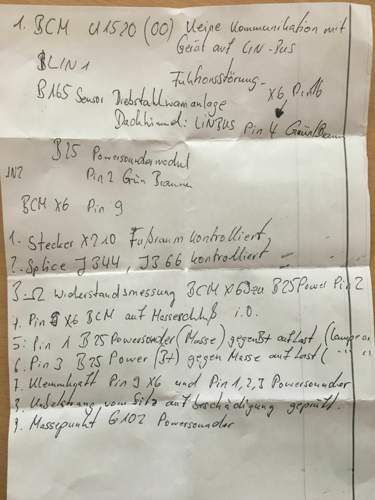 1. BCM U1520 (00) Keine Kommunikation mit
Gerät auf LIN-Bus
BLIN 1
Fuktionsstörung-
B165 Sensor Diebstallwarnanlage X6 Pin16
Dachhimmel: LINBUS Pin 4 Grün/Braun
B25 Powersoundermodul
Pin 2 Grün Braun
BCM X6 Pin 9
1. Stecker X210 Fußraum Kontrolliert
2. Splice J344, J366 kontrolliert
3. Ω Widerstandsmessung BCM X6 zu B25 Power Pin 2
4. Pin 9 X6 BCM auf Masseschluß i.O.
5: Pin 1 B25 Powersounder (Masse) gegen B+ auf Last
6. Pin 3 B25 Power (B+) gegen Masse auf Last ( " "
7. Pin 9 X6 und Pin 1,2,3 Powersounder
8. Kabelstrang vom Sitz auf beschädigung geprüft.
9. Massepunkt G102 Powersounder